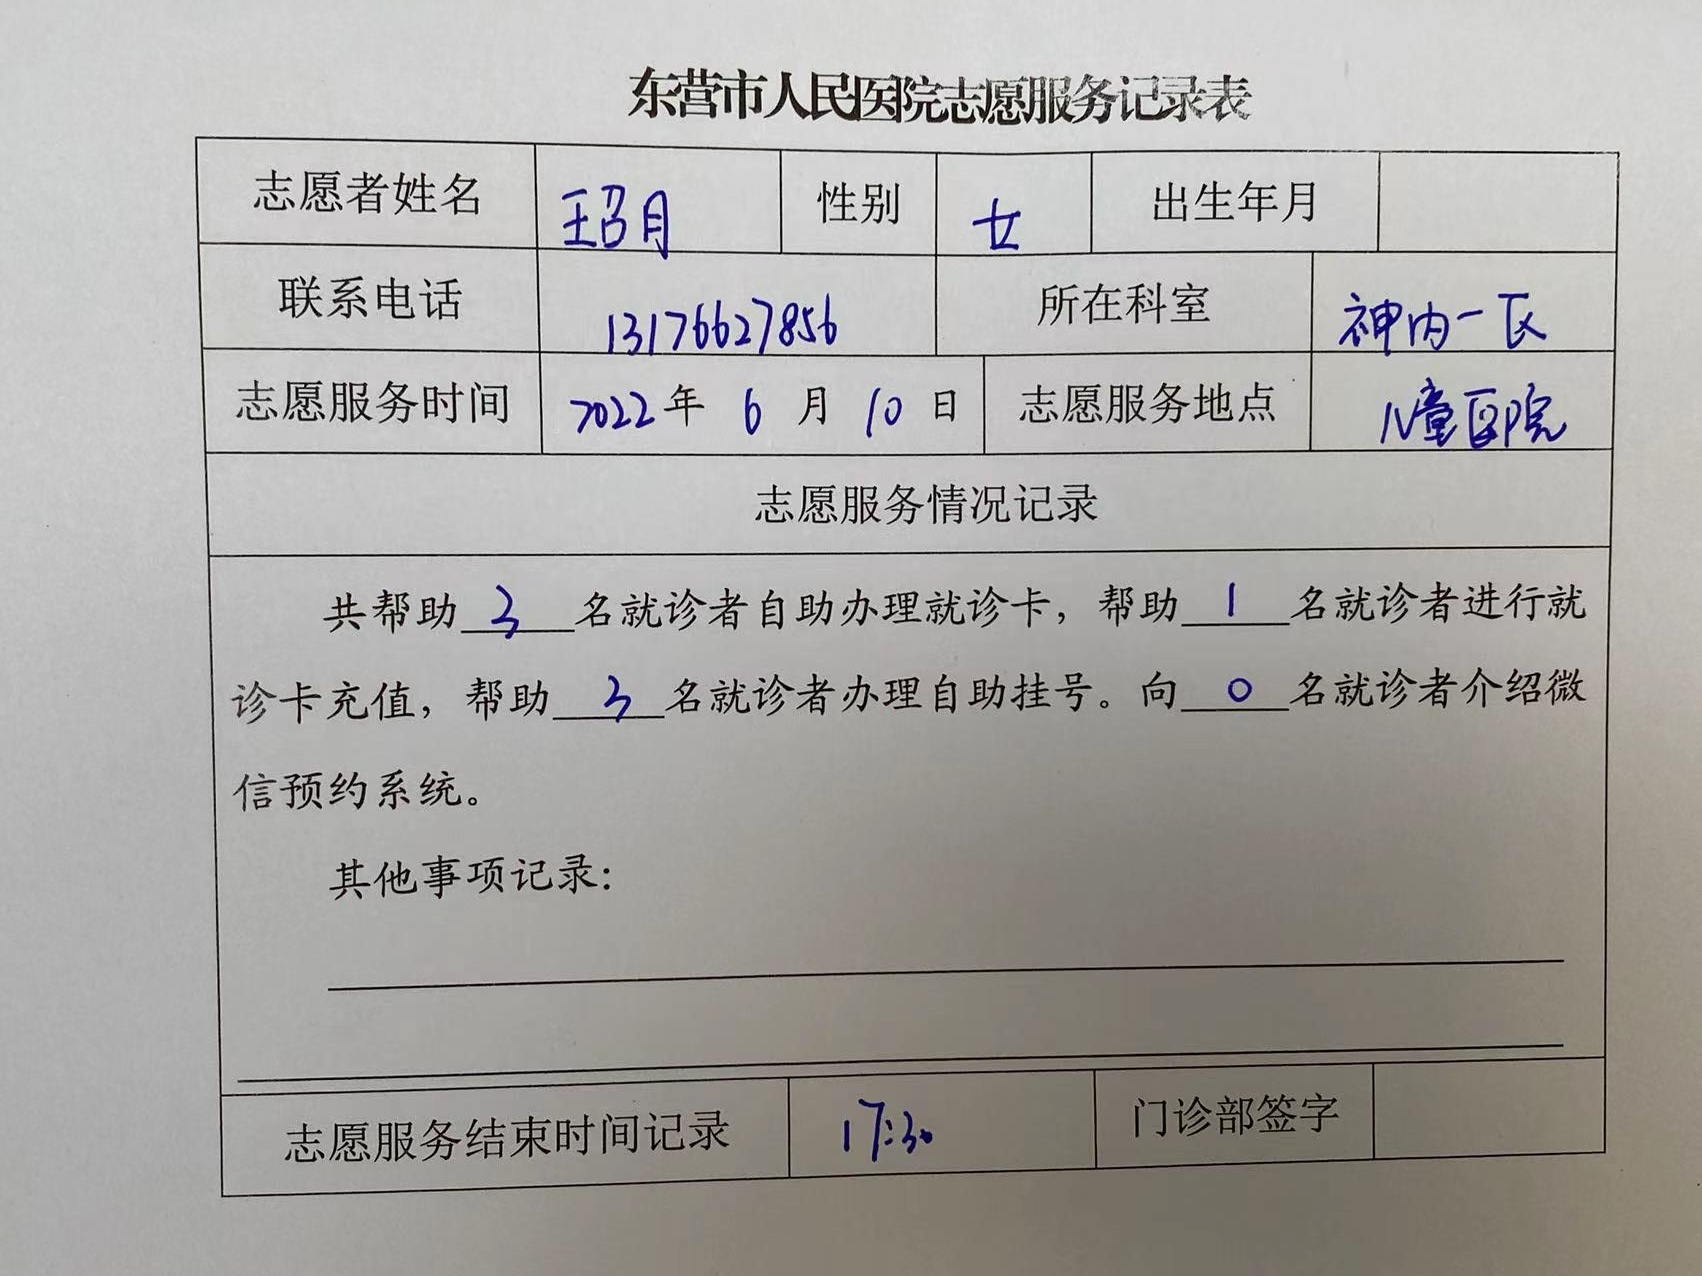 东营市人民医院志愿服务记录表
志愿者姓名 王召月 性别 女 出生年月
联系电话 13176627856 所在科室 神内一区
志愿服务时间 2022年 6 月 10 日 志愿服务地点 儿童医院
志愿服务情况记录
共帮助 3 名就诊者自助办理就诊卡，帮助 1 名就诊者进行就
诊卡充值，帮助 3 名就诊者办理自助挂号。向 0 名就诊者介绍微
信预约系统。
其他事项记录：
志愿服务结束时间记录 17:30 门诊部签字